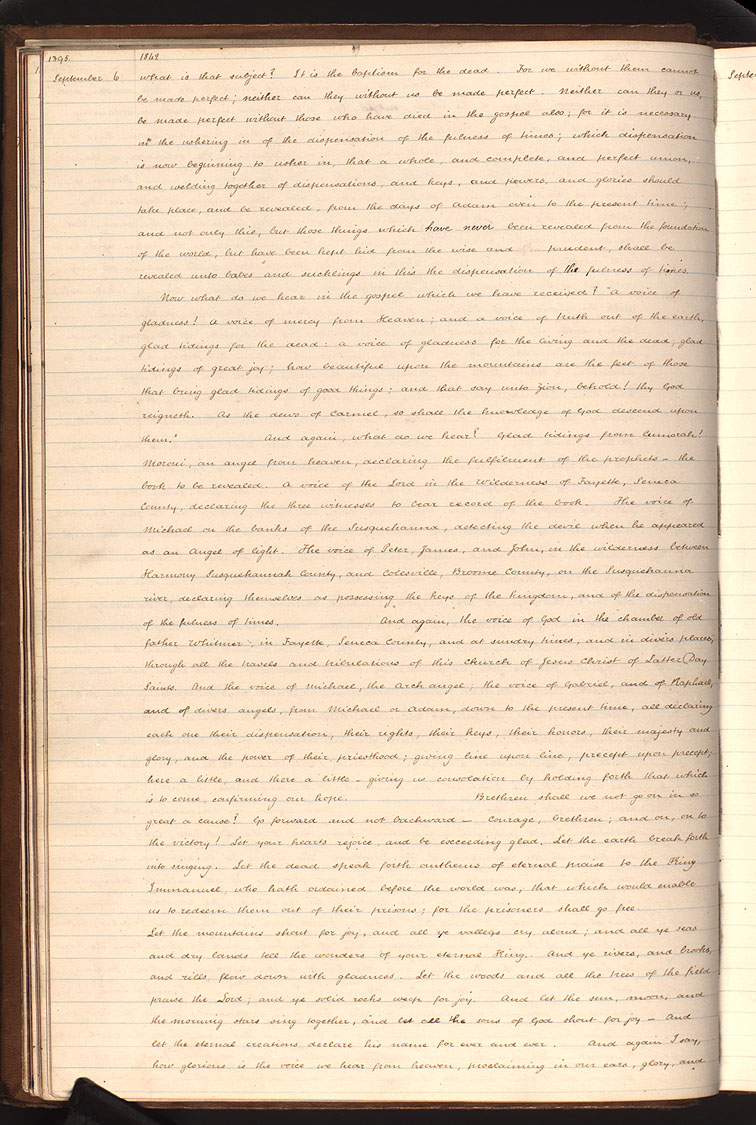 1395.
1842
September 6
what is that subject? It is the baptism for the dead. For we without them cannot
be made perfect; neither can they without us be made perfect. Neither can they or us,
be made perfect without those who have died in the gospel also; for it is necessary
in the ushering in of the dispensation of the fulness of times; which dispensation
is now beginning to usher in, that a whole, and complete, and perfect union,
and welding together of dispensations, and keys, and powers, and glories should
take place, and be revealed, from the days of Adam even to the present time;
and not only this, but those things which have never been revealed from the foundation
of the world, but have been kept hid from the wise and prudent, shall be
revealed unto babes and sucklings in this the dispensation of the fulness of times.
Now what do we hear in the gospel which we have received? "A voice of
gladness! A voice of mercy from Heaven; and a voice of truth out of the earth,
glad tidings for the dead: a voice of gladness for the living and the dead; glad
tidings of great joy; how beautiful upon the mountains are the feet of those
that bring glad tidings of good things; and that say unto Zion, behold! thy God
reigneth. As the dews of Carmel, so shall the knowledge of God descend upon
them." And again, what do we hear? Glad tidings from Cumorah!
Moroni, an angel from heaven, declaring the fulfilment of the prophets – the
book to be revealed. A voice of the Lord in the wilderness of Fayette, Seneca
County, declaring the three witnesses to bear record of the book. The voice of
Michael on the banks of the Susquehanna, detecting the devil when he appeared
as an Angel of light. The voice of Peter, James, and John, in the wilderness between
Harmony Susquehannah County, and Colesville, Broome County, on the Susquehanna
river, declaring themselves as possessing the keys of the kingdom, and of the dispensation
of the fulness of times. And again, the voice of God in the chamber of old
father Whitmer, in Fayette, Seneca County, and at sundry times, and in divers places,
through all the travels and tribulations of this Church of Jesus Christ of Latter Day
Saints. And the voice of Michael, the Arch angel; the voice of Gabriel, and of Raphael,
and of divers angels, from Michael or Adam, down to the present time, all declaring
each one their dispensation, their rights, their keys, their honors, their majesty and
glory, and the power of their priesthood; giving line upon line, precept upon precept;
here a little, and there a little – giving us consolation by holding forth that which
is to come, confirming our hope. Brethren shall we not go on in so
great a cause? Go forward and not backward – courage, brethren; and on, on to
the victory! Let your hearts rejoice, and be exceeding glad. Let the earth break forth
into singing. Let the dead speak forth anthems of eternal praise to the King
Immanuel, who hath ordained before the world was, that which would enable
us to redeem them out of their prisons; for the prisoners shall go free.
Let the mountains shout for joy, and all ye valleys cry aloud; and all ye seas
and dry lands tell the wonders of your eternal King. And ye rivers, and brooks,
and rills, flow down with gladness. Let the woods and all the trees of the field
praise the Lord; and ye solid rocks weep for joy. And let the sun, moon, and
the morning stars sing together, and let all the sons of God shout for joy – And
let the eternal creations declare his name for ever and ever. And again I say,
how glorious is the voice we hear from heaven, proclaiming in our ears, glory, and
Septe